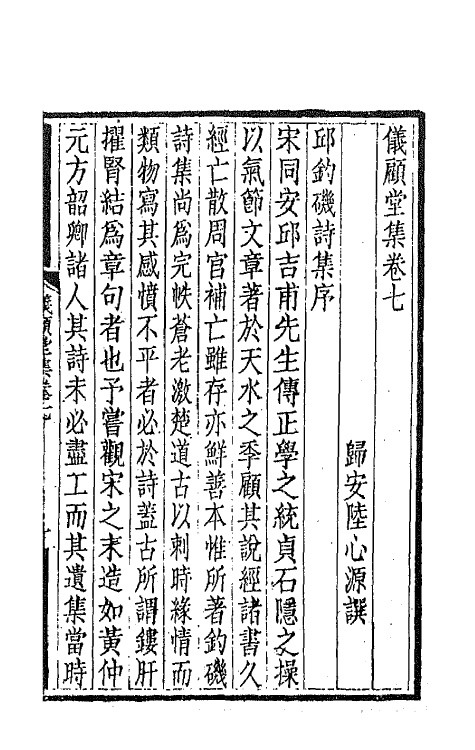 儀顧堂集卷七
歸安陸心源譔
邱釣磯詩集序
宋同安邱吉甫先生傳正學之統貞石隱之操
以氣節文章著於天水之季顧其說經諸書久
經亡散周官補亡雖存亦鮮善本惟所著釣磯
詩集尚爲完帙蒼老激楚道古以刺時緣情而
類物寫其感憤不平者必於詩蓋古所謂鏤肝
擢腎結爲章句者也予嘗觀宋之末造如黃仲
元方韶卿諸人其詩未必盡工而其遺集當時
儀顧堂集卷七